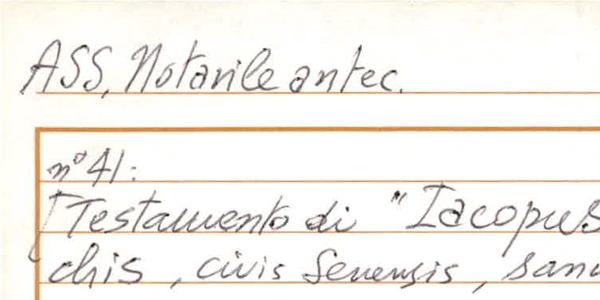 ASS, Notarile antec.
n° 41:
[Testamento di "Iacopus
chis, civis Senensis, sanu